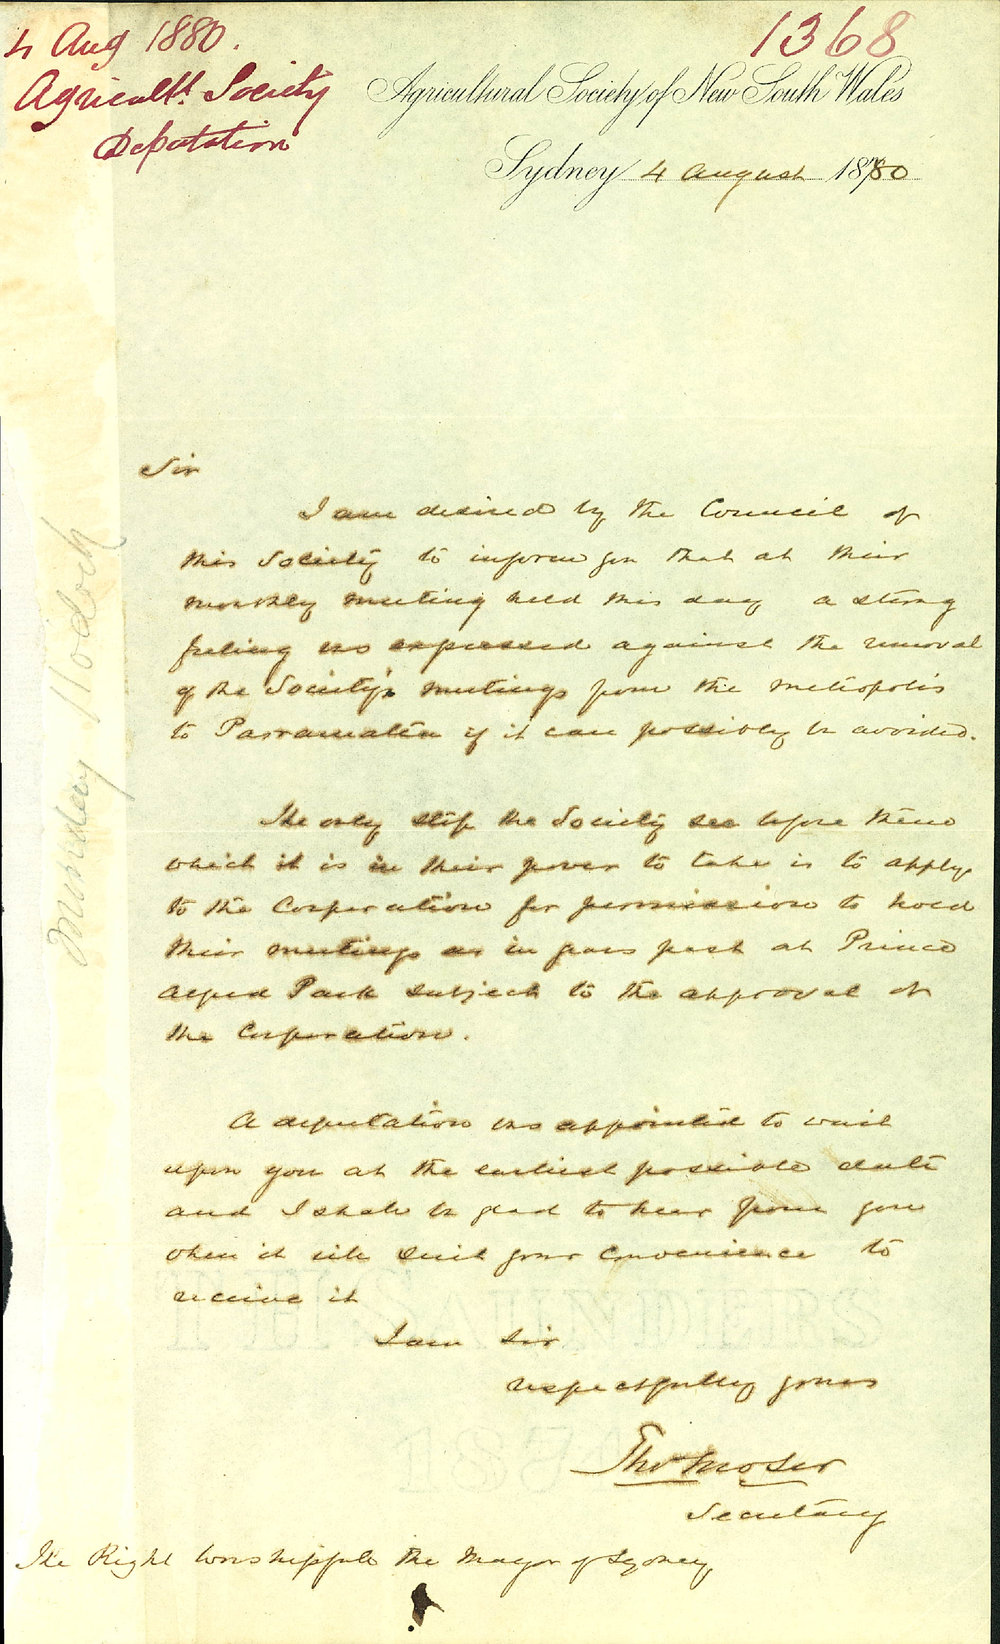 4 Aug 1880.
Agricultl. Society
Deputation
1368
Agricultural Society of New South Wales
Sydney 4 August 1880
Sir
I am desired by the Council of
this Society to inform you that at their
monthly meeting held this day a strong
feeling was expressed against the removal
of the Society's meetings from the metropolis
to Parramatta if it can possibly be avoided.
The only step the Society see before them
which it is in their power to take is to apply
to the Corporation for permission to hold
their meetings as in years past at Prince
Alfred Park subject to the approval of
the Corporation.
A deputation was appointed to wait
upon you at the earliest possible date
and I shall be glad to hear from you
when it will suit your convenience to
receive it
I am Sir
respectfully yours
Secretary
The Right Worshipfull the Mayor of Sydney
T H SAUNDERS
187